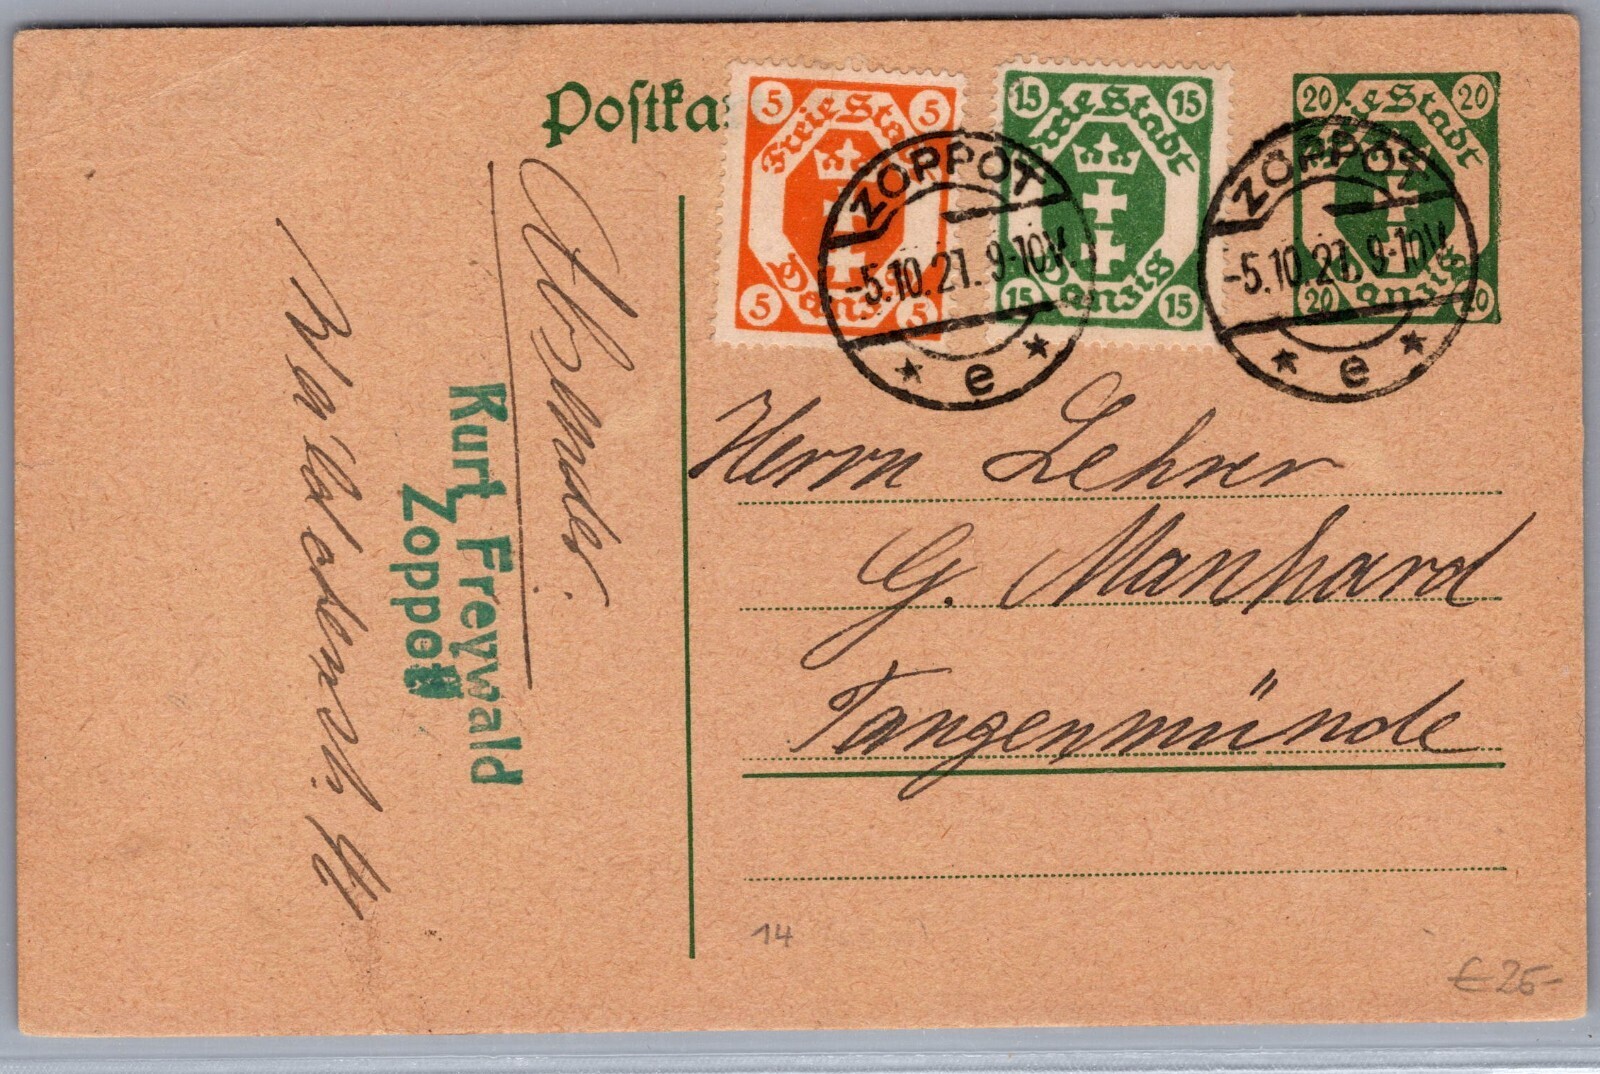 Postka
5 5
Freie Stadt
Danzig
5 5
15 15
Freie Stadt
Danzig
15 15
20 20
Freie Stadt
Danzig
20 20
ZOPPOT
-5.10.21. 9-10V.
* e *
ZOPPOT
-5.10.21. 9-10V.
* e *
Herrn Lehrer
G. Manhard
Tangenmünde
Absender:
Kurt Freywald
Zoppot
14
€ 25-